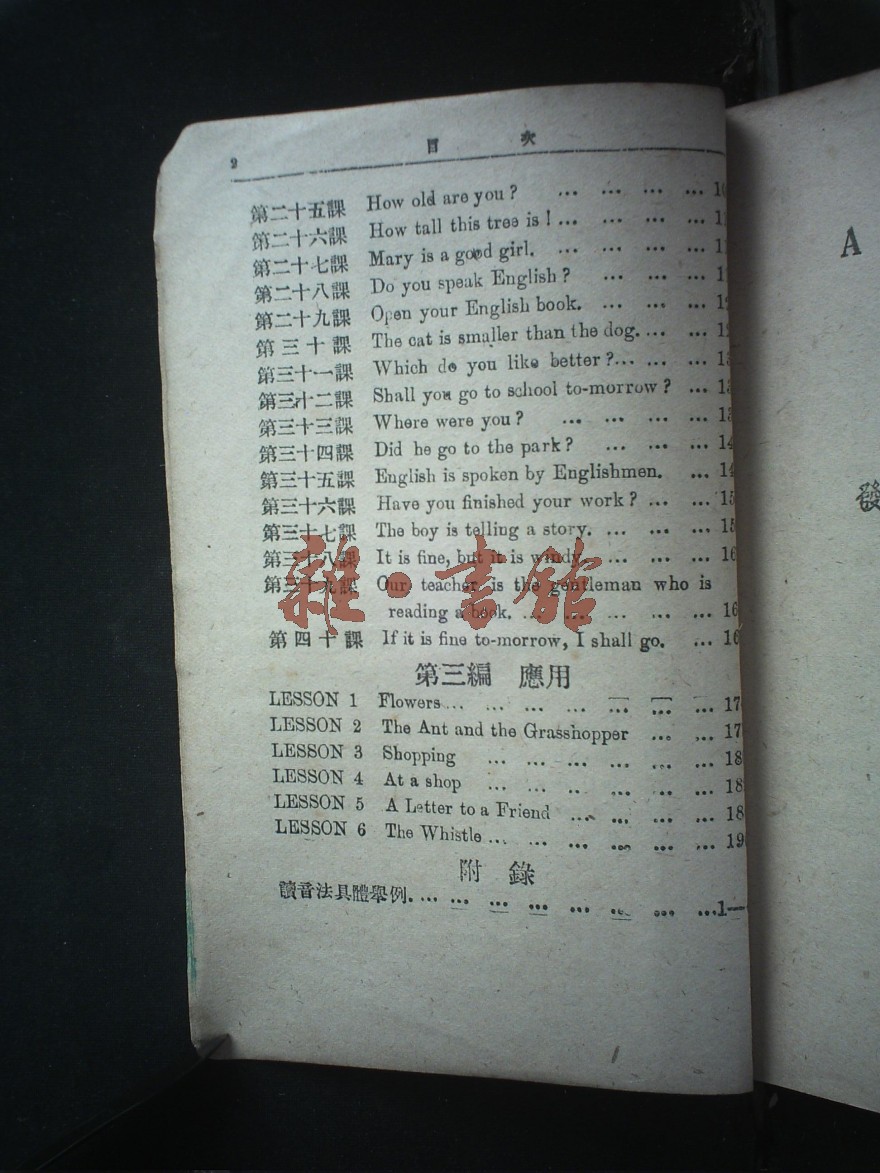 2 目 次
第二十五課 How old are you? ... ... ... ... 10
第二十六課 How tall this tree is!... ... ... ... 11
第二十七課 Mary is a good girl. ... ... ... ... 11
第二十八課 Do you speak English? ... ... ... 11
第二十九課 Open your English book. ... ... ... 12
第三十課 The cat is smaller than the dog. ... ... 12
第三十一課 Which do you like better?... ... ... 13
第三十二課 Shall you go to school to-morrow? ... 13
第三十三課 Where were you? ... ... ... ... 13
第三十四課 Did he go to the park? ... ... ... 14
第三十五課 English is spoken by Englishmen. ... 14
第三十六課 Have you finished your work? ... ... 15
第三十七課 The boy is telling a story. ... ... ... 15
第三十八課 It is fine, but it is windy. ... ... ... 16
第三十九課 Our teacher is the gentleman who is
reading a book. ... ... ... ... ... 16
第四十課 If it is fine to-morrow, I shall go. ... 16
第三編 應用
LESSON 1 Flowers... ... ... ... ... ... ... 17
LESSON 2 The Ant and the Grasshopper ... ... 17
LESSON 3 Shopping ... ... ... ... ... ... 18
LESSON 4 At a shop ... ... ... ... ... ... 18
LESSON 5 A Letter to a Friend ... ... ... ... 18
LESSON 6 The Whistle... ... ... ... ... ... 19
附 錄
讀音法具體舉例. ... ... ... ... ... ... ... ...1—
雜·書館
A
發